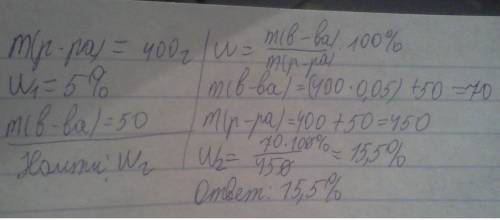 m(р-ра) = 400г
W₁ = 5%
m(в-ва) = 50
Найти: W₂
W = m(в-ва)/m(р-ра) · 100%
m(в-ва) = (400 · 0,05) + 50 = 70
m(р-ра) = 400 + 50 = 450
W₂ = 70 · 100%/450 = 15,5%
Ответ: 15,5%